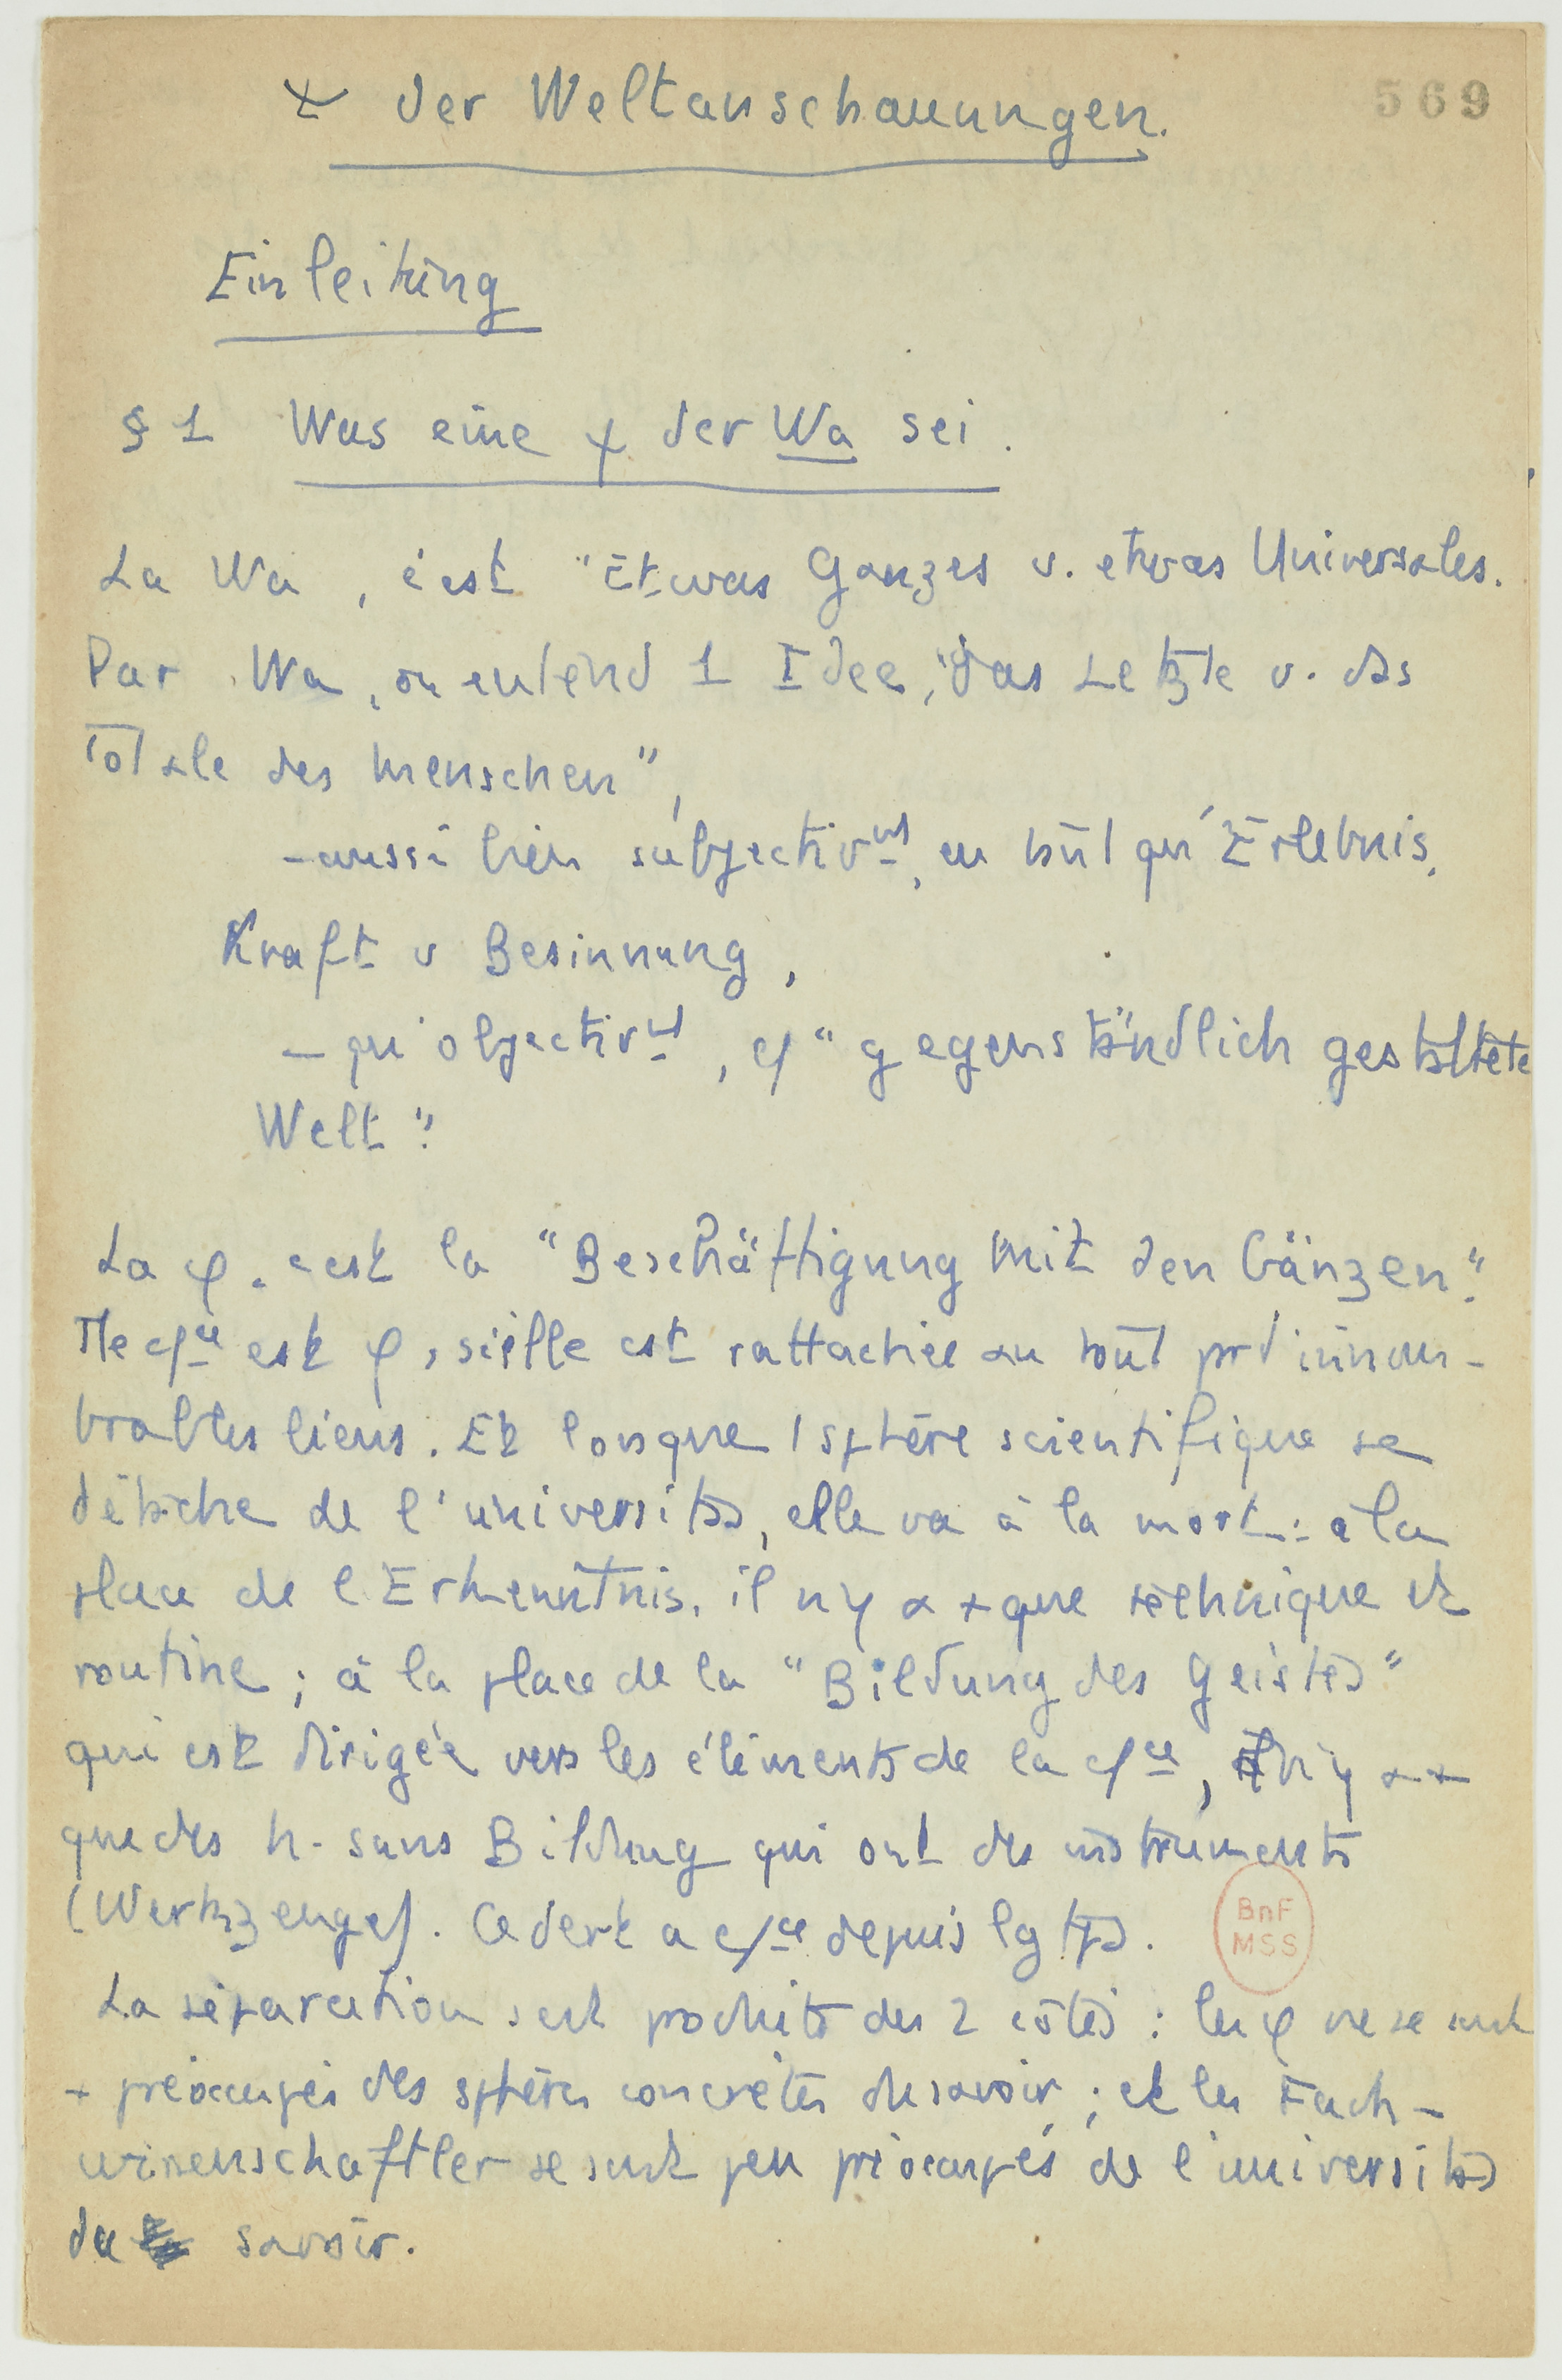 569
ψ der Weltanschauungen.
Einleitung
§ 1 Was eine ψ der Wa sei.
La Wa, c'est "Etwas Ganzes u. etwas Universales.
Par Wa, on entend 1 Idee, "das Letzte u. das
Totale des Menschen",
- aussi bien subjectivnt, en tant qu'Erlebnis,
Kraft u Besinnung,
- qu'objectivnt, cf "gegenständlich gestaltete
Welt".
La φ. c'est la "Beschäftigung mit den Gänzen".
Tte cfce est φ, si elle est rattachée au tout pr d'innom-
brables liens. Et lorsque 1 sphère scientifique se
détache de l'universités, elle va à la mort : à la
place de l'Erkenntnis, il n'y a + que technique et
routine ; à la place de la "Bildung des Geistes"
qui est dirigée vers les éléments de la cfce, il n'y a +
que des h. sans Bildung qui ont des instruments
(Werkzeuge). Ce derk a cfce depuis lg tps.
La séparation s'est produite des 2 côtés : les φ ne se sont
+ préoccupés des sphères concrètes du savoir ; et les Fach-
wissenschaftler se sont peu préoccupés de l'universités
du savoir.
BnF
MSS